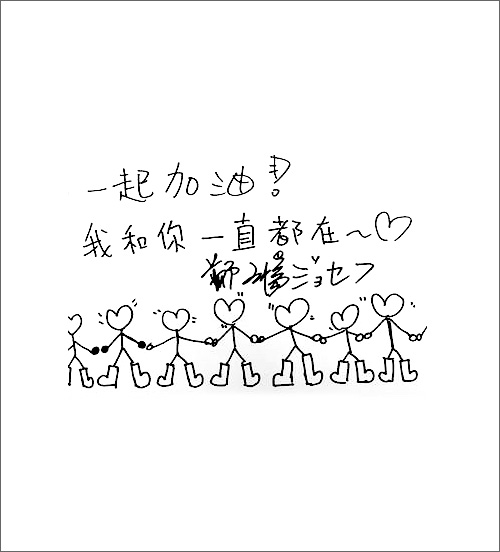 一起加油!
我和你一直都在~♡
ジョセフ